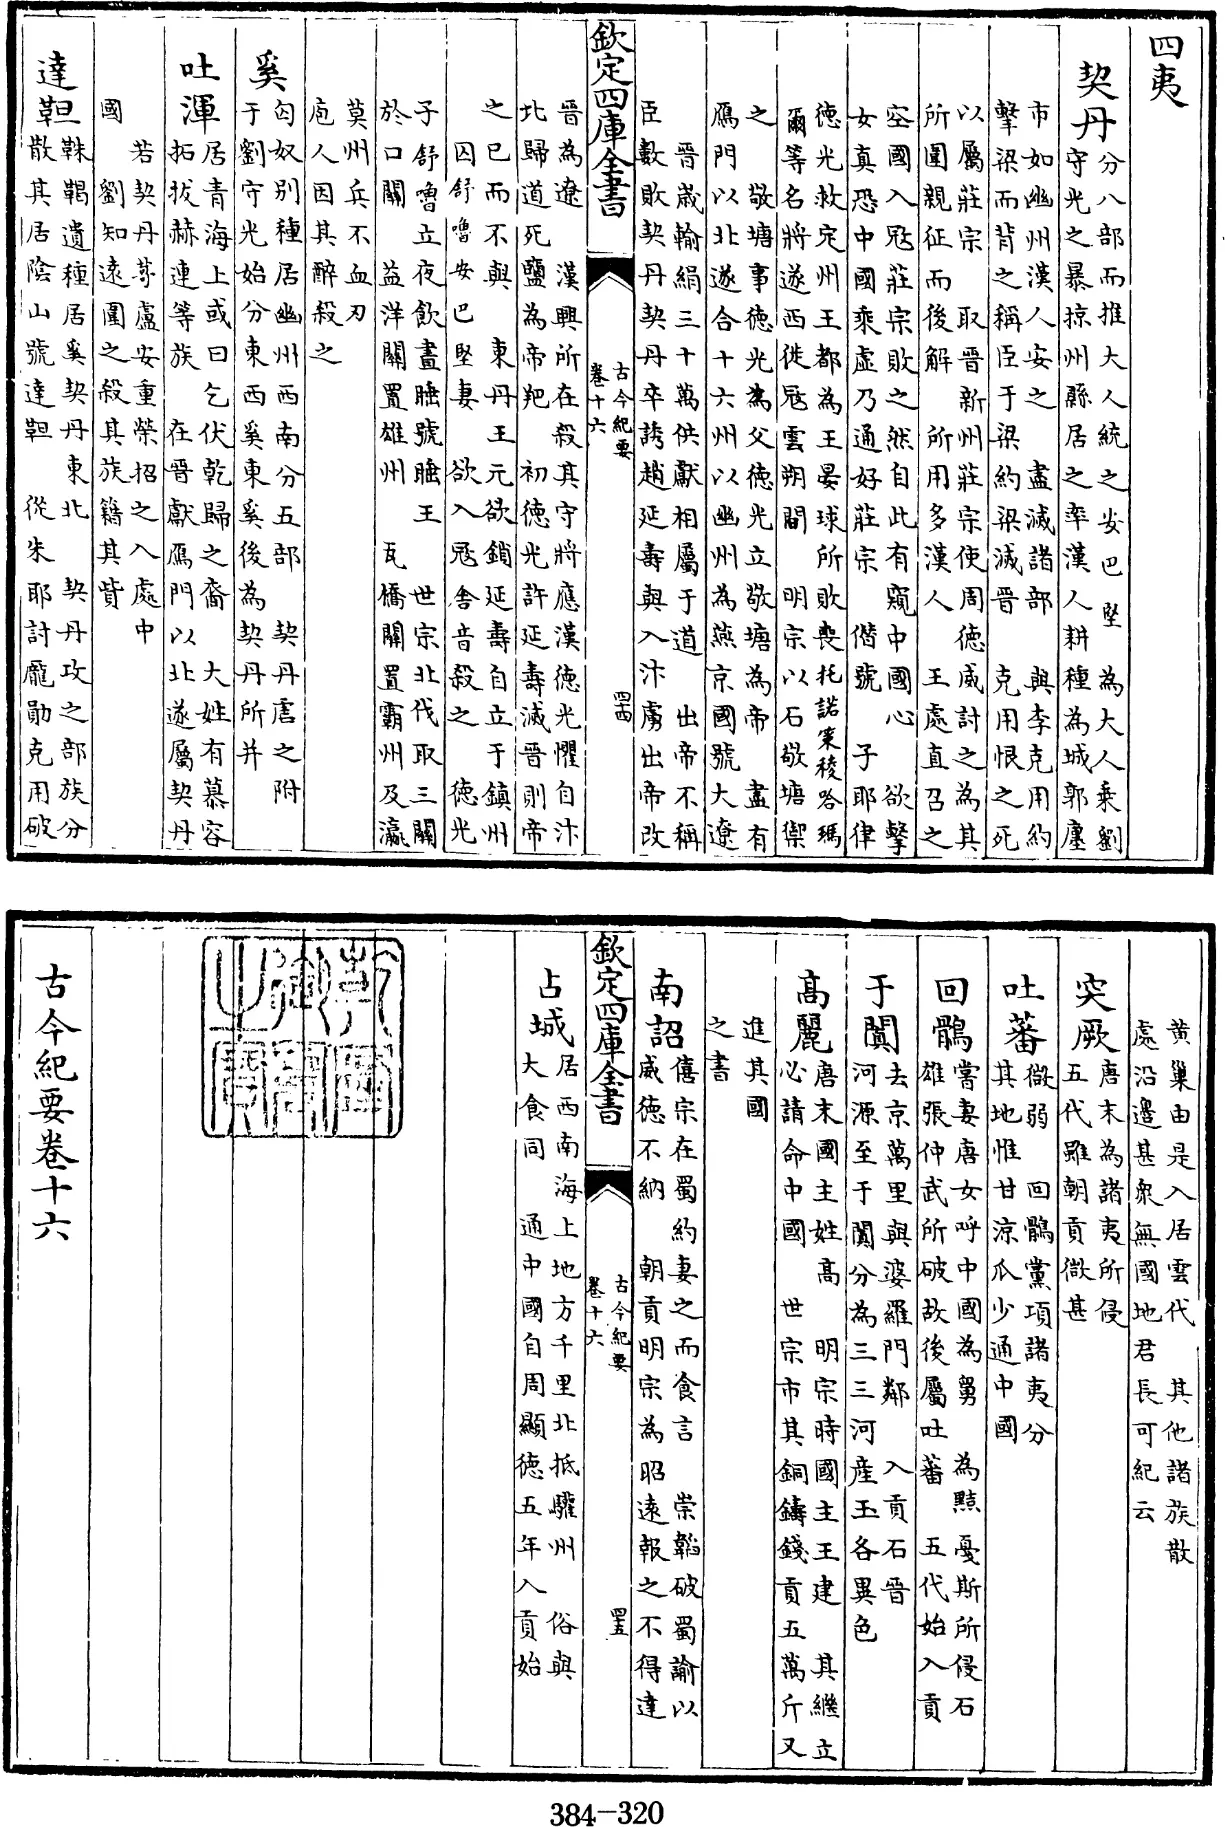 四夷
契丹
分八部而推大人統之安巴堅 為大人乘劉
守光之暴掠州縣居之率漢人耕種為城郭廛
市如幽州漢人安之 盡滅諸部 與李克用約
擊梁而背之稱臣于梁約梁滅晉 克用恨之死
以屬莊宗 取晉新州莊宗使周德威討之為其
所圍親征而後解 所用多漢人 王處直召之
空國入冦莊宗敗之然自此有窺中國心 欲擊
女真恐中國乘虛乃通好莊宗 僭號 子耶律
德光救定州王都為王晏球所敗喪托諾策稜哈瑪
爾等名將遂西徙冦雲朔間 明宗以石敬塘禦
之 敬塘事德光為父德光立敬塘為帝 盡有
鴈門以北遂合十六州以幽州為燕京國號大遼
晉歲輸絹三十萬供獻相屬于道 出帝不稱
臣數敗契丹契丹卒誘趙延壽與入汴虜出帝改
欽定四庫全書
古今紀要
卷十六
罒
晉為遼 漢興所在殺其守將應漢德光懼自汴
北歸道死鹽為帝羓 初德光許延壽滅晉則帝
之已而不與 東丹王元欲鎖延壽自立于鎮州
囚舒嚕安巴堅妻 欲入冦舍音殺之 德光
子舒嚕立夜飲晝睡號睡王 世宗北伐取三關
於口關 益洋關置雄州 瓦橋關置霸州及瀛
莫州兵不血刃
庖人因其醉殺之
奚
匈奴別種居幽州西南分五部 契丹虐之附
于劉守光始分東西奚東奚後為契丹所并
吐渾
居青海上或曰乞伏乾歸之裔 大姓有慕容
拓拔赫連等族 在晉獻鴈門以北遂屬契丹
若契丹苛虐安重榮招之入處中
國 劉知遠圍之殺其族籍其貲
達靼
靺鞨遺種居奚契丹東北 契丹攻之部族分
散其居陰山號達靼 從朱耶討龐勛克用破
黄巢由是入居雲代 其他諸族散
處沿邊甚衆無國地君長可紀云
突厥
唐末為諸夷所侵
五代雖朝貢微甚
吐蕃
微弱 回鶻黨項諸夷分
其地惟甘涼瓜少通中國
回鶻
嘗妻唐女呼中國為舅 為黠戞斯所侵石
雄張仲武所破故後屬吐蕃 五代始入貢
于闐
去京萬里與婆羅門鄰 入貢石晉
河源至于闐分為三三河產玉各異色
高麗
唐末國主姓高 明宗時國主王建 其繼立
必請命中國 世宗市其銅鑄錢貢五萬斤又
進其國
之書
南詔
僖宗在蜀約妻之而食言 崇韜破蜀諭以
威德不納 朝貢明宗為昭遠報之不得達
欽定四庫全書
古今紀要
卷十六
罒五
占城
居西南海上地方千里北抵驩州 俗與
大食同 通中國自周顯德五年入貢始
古今紀要卷十六
384-320